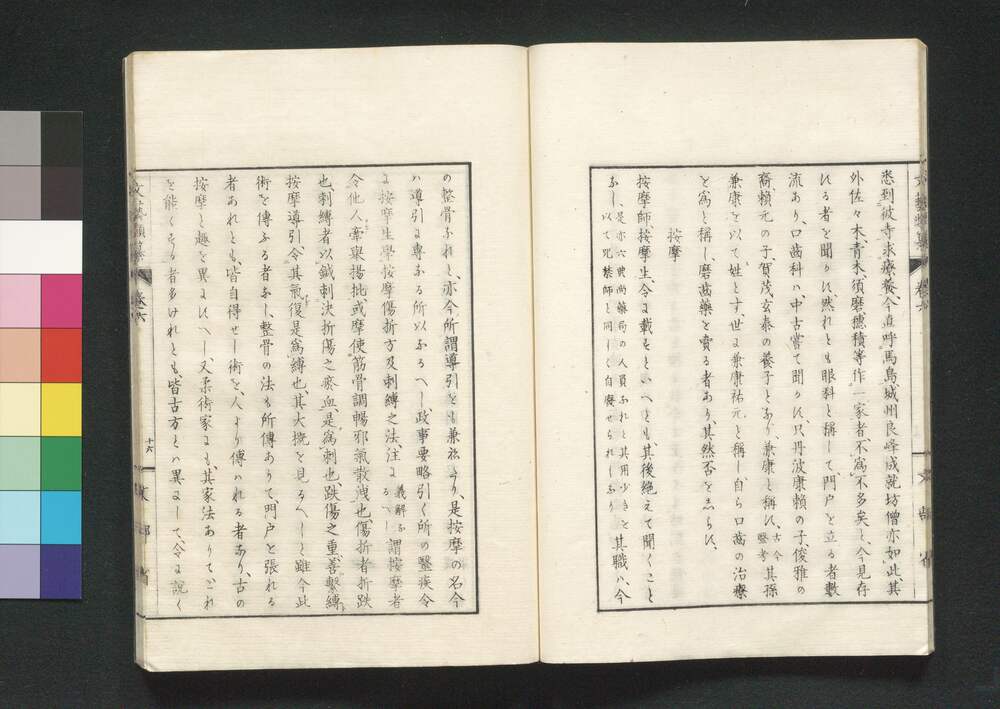 悉到彼寺求療養、今直呼馬島、城州良峰成就坊僧亦如此、其
外佐々木青木、須磨、穂積等作一家者、不爲不多矣と、今見存
れる者を聞かに、然れとも眼科と稱して、門戸を立る者數
流あり、口齒科ハ中古嘗て聞かに、只丹波康賴の子、俊雅の
裔、賴元の子、賀茂玄泰の養子となり、兼康と稱し、古今醫考其孫
兼康を以て、姓とす、世に兼康祐元と稱し、自ら口齒の治療
を爲と稱し、磨齒藥を賣る者あり、其然否をしらに、
按摩
按摩師按摩生、令に載をといへとも其後絶えて聞くこと
なし、是亦六典尚藥局の人員なれと其用少きを以て呪禁師と同しく自廢せられしなり其職ハ、今
の整骨なれと、亦今所謂導引をも兼ねたり、是按摩の名今
ハ導引に専なる所以なるへし、政事要略引く所の醫疾令
に按摩生、學按摩傷折方及刺縛之法、注に義解なるへし謂按摩者
令他人牽擧揚批、或摩使筋骨調暢邪氣散洩也、傷折者折跌
也、刺縛者以鍼刺决折傷之瘀血、是爲刺也、跌傷之重、善繫縛
按摩導引、令其氣復、是爲縛也、其大概を見るへしと雖今此
術を傳ふる者なし、整骨の法も所傳ありて、門戸を張れる
者あれとも、皆自得せし術を、人より傳ハれる者あり、古の
按摩と趣を異にいへし、又柔術家にも、其家法ありてこれ
を能くする者多けれとも、皆古方とハ異にして、今に說く
文藝類纂 卷六
十六
文部省